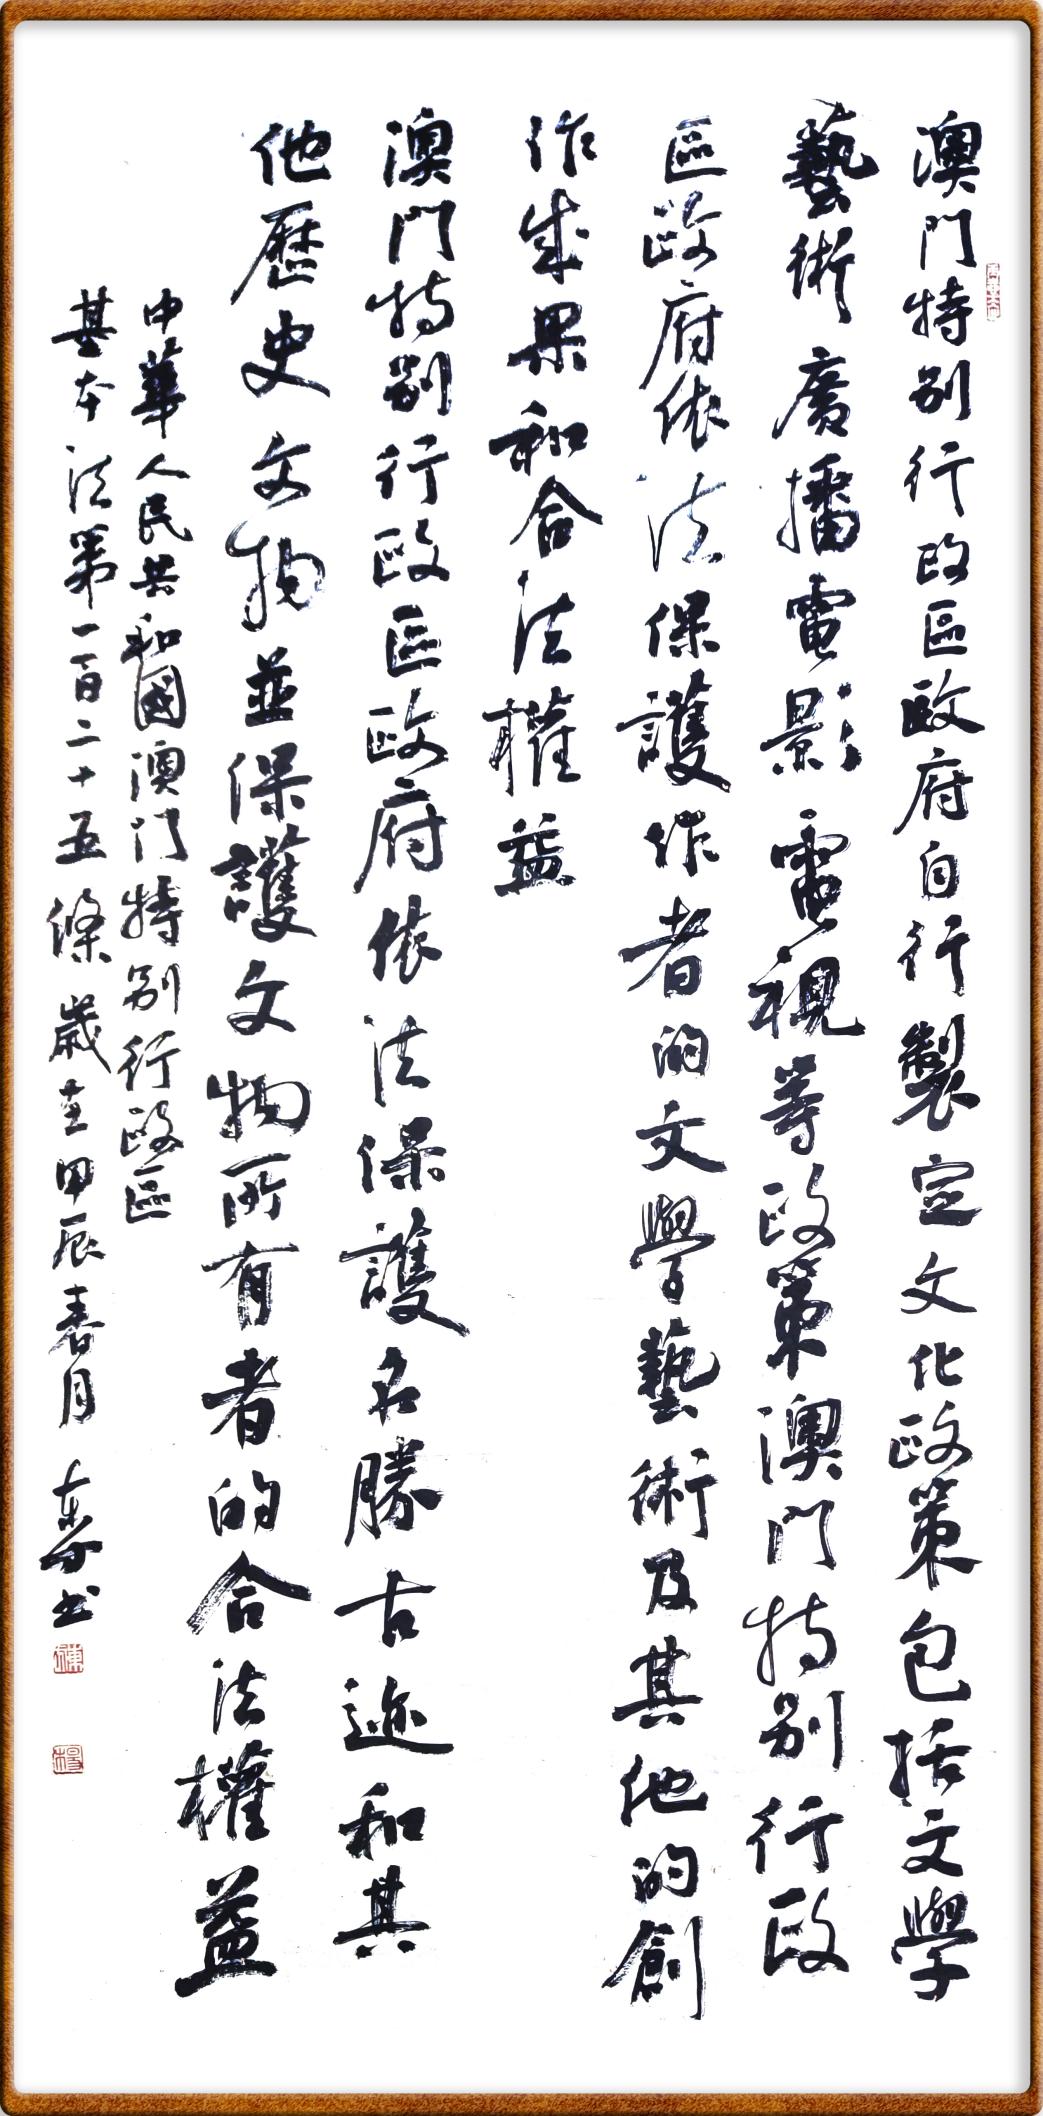 澳門特别行政區政府自行製定文化政策包括文學
藝術廣播電影電視等政策澳門特别行政
區政府依法保護作者的文學藝術及其他的創
作成果和合法權益
澳門特别行政區政府依法保護名勝古迹和其
他歷史文物並保護文物所有者的合法權益
中華人民共和國澳門特别行政區
基本法第一百二十五條 歲在甲辰春月 書